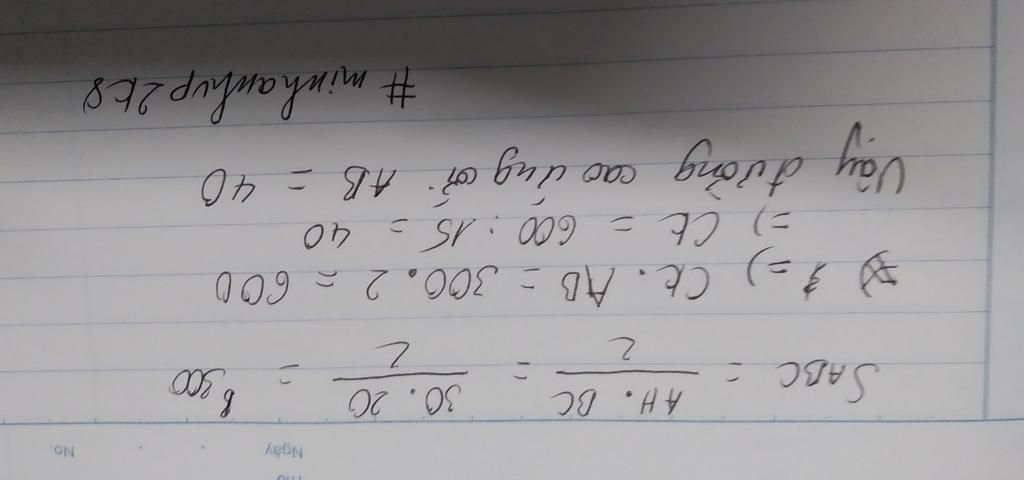 Ngày
No.
S_ABC = AH . BC / 2 = 30 . 20 / 2 = 300
=) CK . AB = 300 . 2 = 600
=) CK = 600 : 15 = 40
Vậy đường cao ứng với AB = 40
#minhanhvp2k8